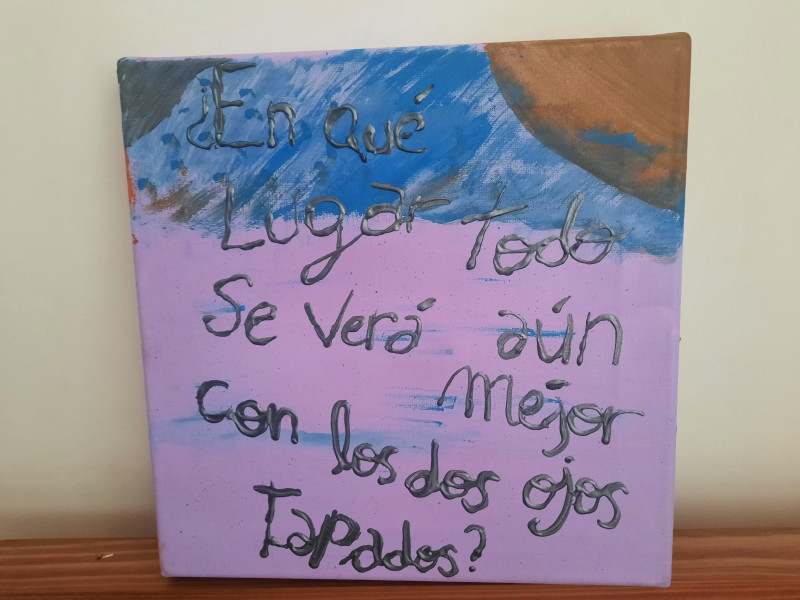 ¿En qué
Lugar Todo
Se Verá aún
con Mejor
los dos ojos
Tapados?